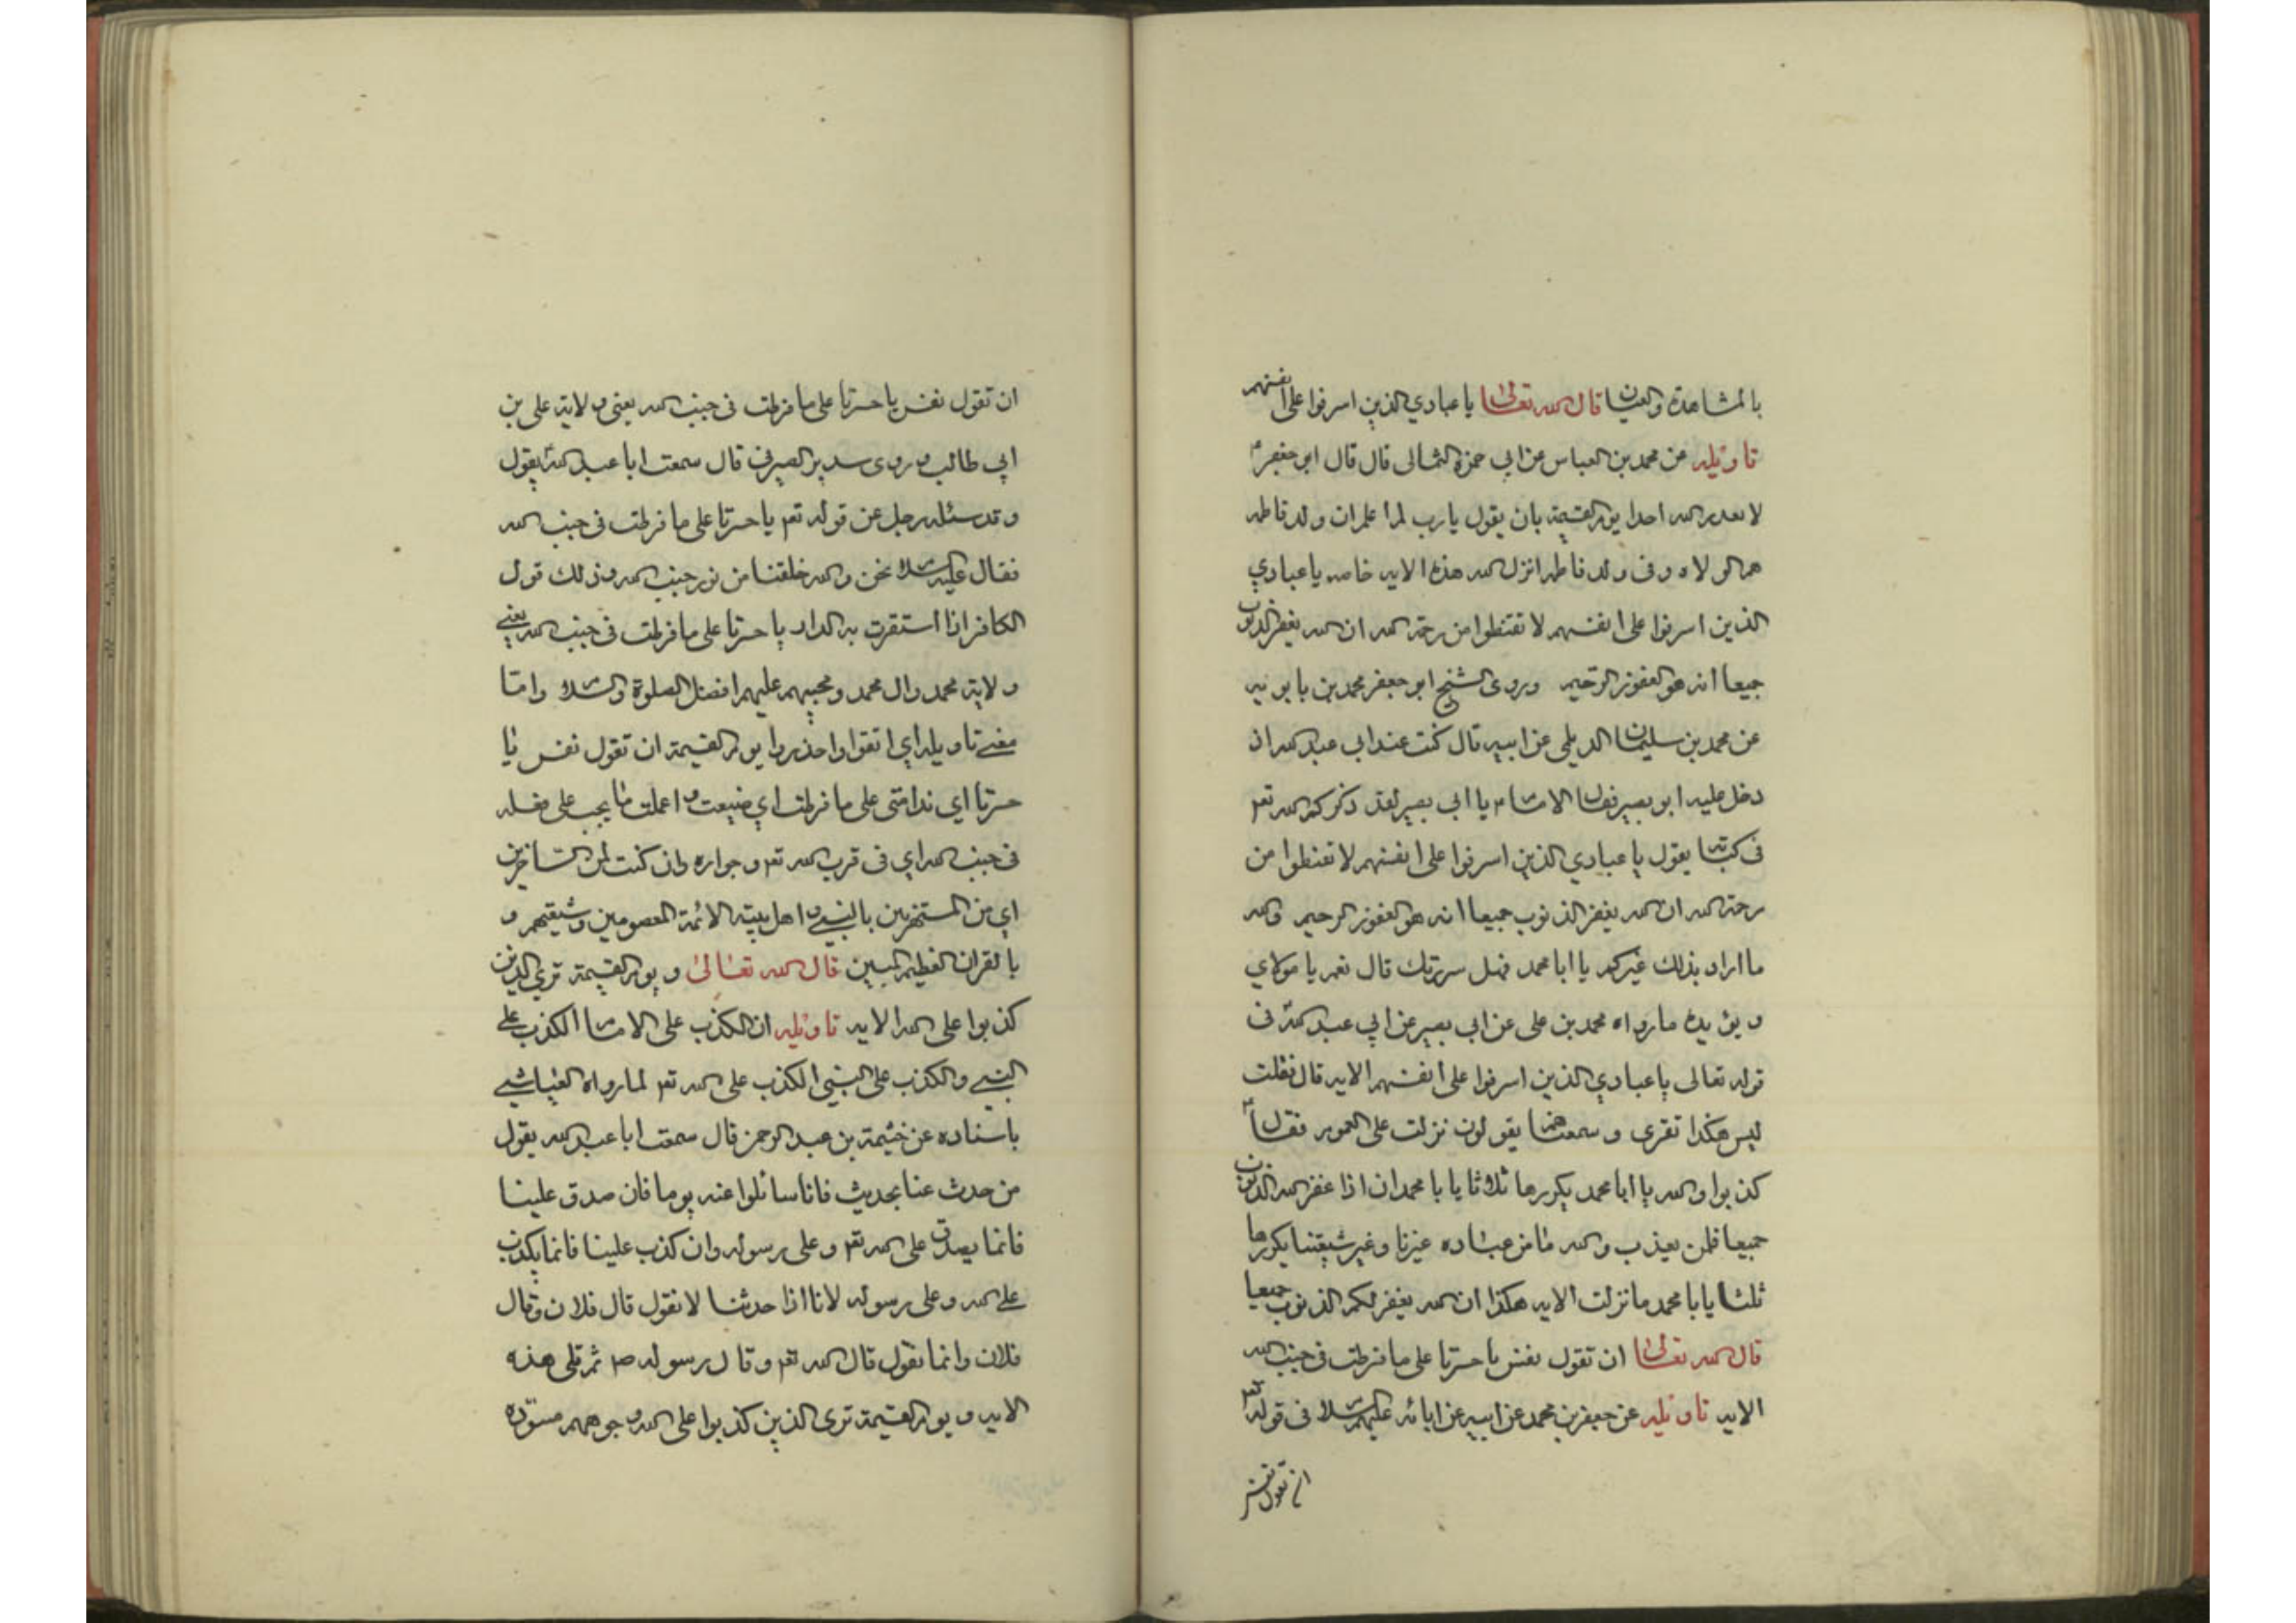 بالمشاهدة والعيان قال الله تعالى يا عبادي الذين اسرفوا على انفسهم
تاويله عن محمد بن العباس عن ابي حمزة الثمالى قال قال ابو جعفر ع
لا يعذر الله احدا يوم القيمة بان يقول يا رب لم اعلم ان ولد فاطمه
هم الولاه وفى ولد فاطمه انزل الله هذه الايه خاصه يا عبادي
الذين اسرفوا على انفسهم لا تقنطوا من رحمة الله ان الله يغفر الذنوب
جميعا انه هو الغفور الرحيم وروى الشيخ ابو جعفر محمد بن بابويه
عن محمد بن سليمان الديلمى عن ابيه قال كنت عند ابى عبد الله اذ
دخل عليه ابو بصير فقال الامام يا ابى بصير لقد ذكركم الله تعم
فى كتابه يقول يا عبادي الذين اسرفوا على انفسهم لا تقنطوا من
رحمة الله ان الله يغفر الذنوب جميعا انه هو الغفور الرحيم والله
ما اراد بذلك غيركم يا ابا محمد فهل سررتك قال نعم يا مولاي
ويؤيده ما رواه محمد بن على عن ابى بصير عن ابي عبد الله ع فى
قوله تعالى يا عبادي الذين اسرفوا على انفسهم الايه قال فقلت
ليس هكذا تقرى وسمعتهم يقولون نزلت على العموم فقال ع
كذبوا والله يا ابا محمد يكررها ثلاثا يا با محمد ان اذا غفر الله الذنوب
جميعا فلمن يعذب والله ما من عباده غيرنا وغير شيعتنا يكررها
ثلثا يا با محمد ما نزلت الايه هكذا ان الله يغفر لكم الذنوب جميعا
قال الله تعالى ان تقول نفس يا حسرتا على ما فرطت فى جنب الله
الايه تاويله عن جعفر بن محمد عن ابيه عن ابائه عليهم السلام فى قوله تعم
ان تقول نفس
ان تقول نفس يا حسرتا على ما فرطت فى جنب الله يعنى ولاية على بن
ابي طالب وروى سدير الصيرفى قال سمعت ابا عبد الله ع يقول
وقد سئله رجل عن قوله تعم يا حسرتا على ما فرطت فى جنب الله
فقال عليه السلام نحن والله خلقنا من نور جنب الله وذلك قول
الكافر اذا استقرت به الدار يا حسرتا على ما فرطت فى جنب الله يعنى
ولاية محمد وال محمد ومحبيهم عليهم افضل الصلوة والسلام واما
معنى تاويله اي اتقوا واحذروا يوم القيمة ان تقول نفس يا
حسرتا اي ندامتى على ما فرطت اي ضيعت و اعملت ما يجب على فعله
فى جنب الله اي فى قرب الله تعم وجواره وان كنت لمن الساخرين
اي من المستهزئين بالنبى و اهل بيته الائمة المعصومين وشيعتهم و
بالقران العظيم المبين قال الله تعالى ويوم القيمة تري الذين
كذبوا على الله الايه تاويله ان الكذب على الامام الكذب على
النبى والكذب على النبي الكذب على الله تعم لما رواه العياشى
باسناده عن خثيمة بن عبد الرحمن قال سمعت ابا عبد الله يقول
من حدث عنا بحديث فانا سائلوا عنه يوما فان صدق علينا
فانما يصدق على الله تعم وعلى رسوله وان كذب علينا فانما يكذب
على الله وعلى رسوله لانا اذا حدثنا لا نقول قال فلان وقال
فلان وانما نقول قال الله تعم وقال رسوله صم ثم تلى هذه
الايه ويوم القيمة ترى الذين كذبوا على الله وجوههم مسوّده